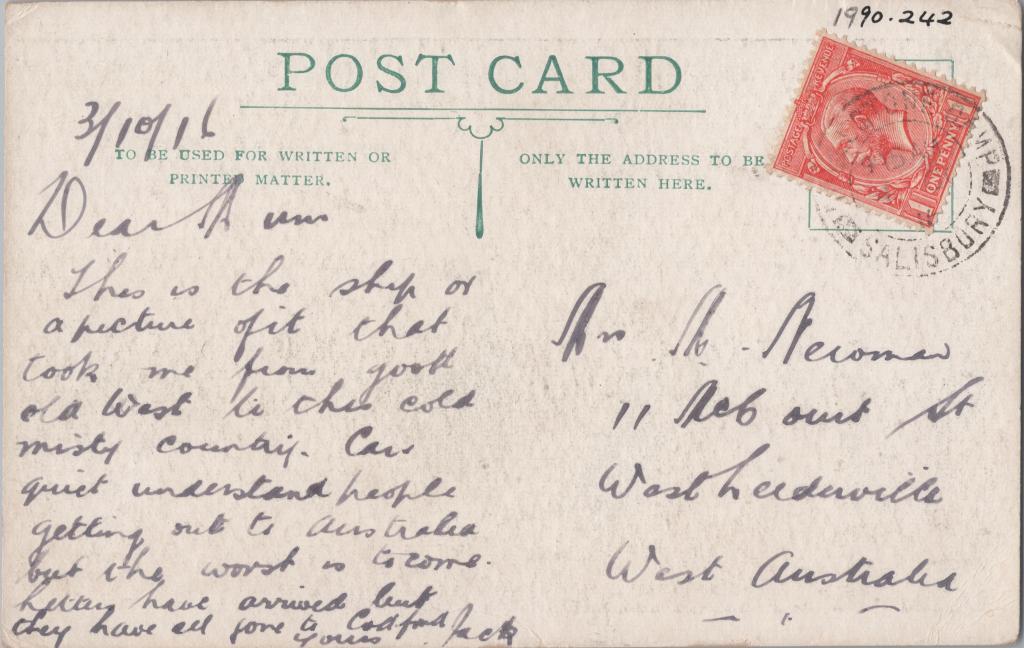 1990.242
POST CARD
3/10/16
TO BE USED FOR WRITTEN OR
PRINTED MATTER.
ONLY THE ADDRESS TO BE
WRITTEN HERE.
POSTAGE REVENUE
ONE PENNY
1
SALISBURY
Dear Mum
This is the ship or
a picture of it that
took me from good
old West to this cold
misty country. Can
quiet understand people
getting out to Australia
but the worst is to come.
letters have arrived but
they have all gone to Codford
Yours Jack
Mrs M. Newman
11 St
West Leederville
West Australia